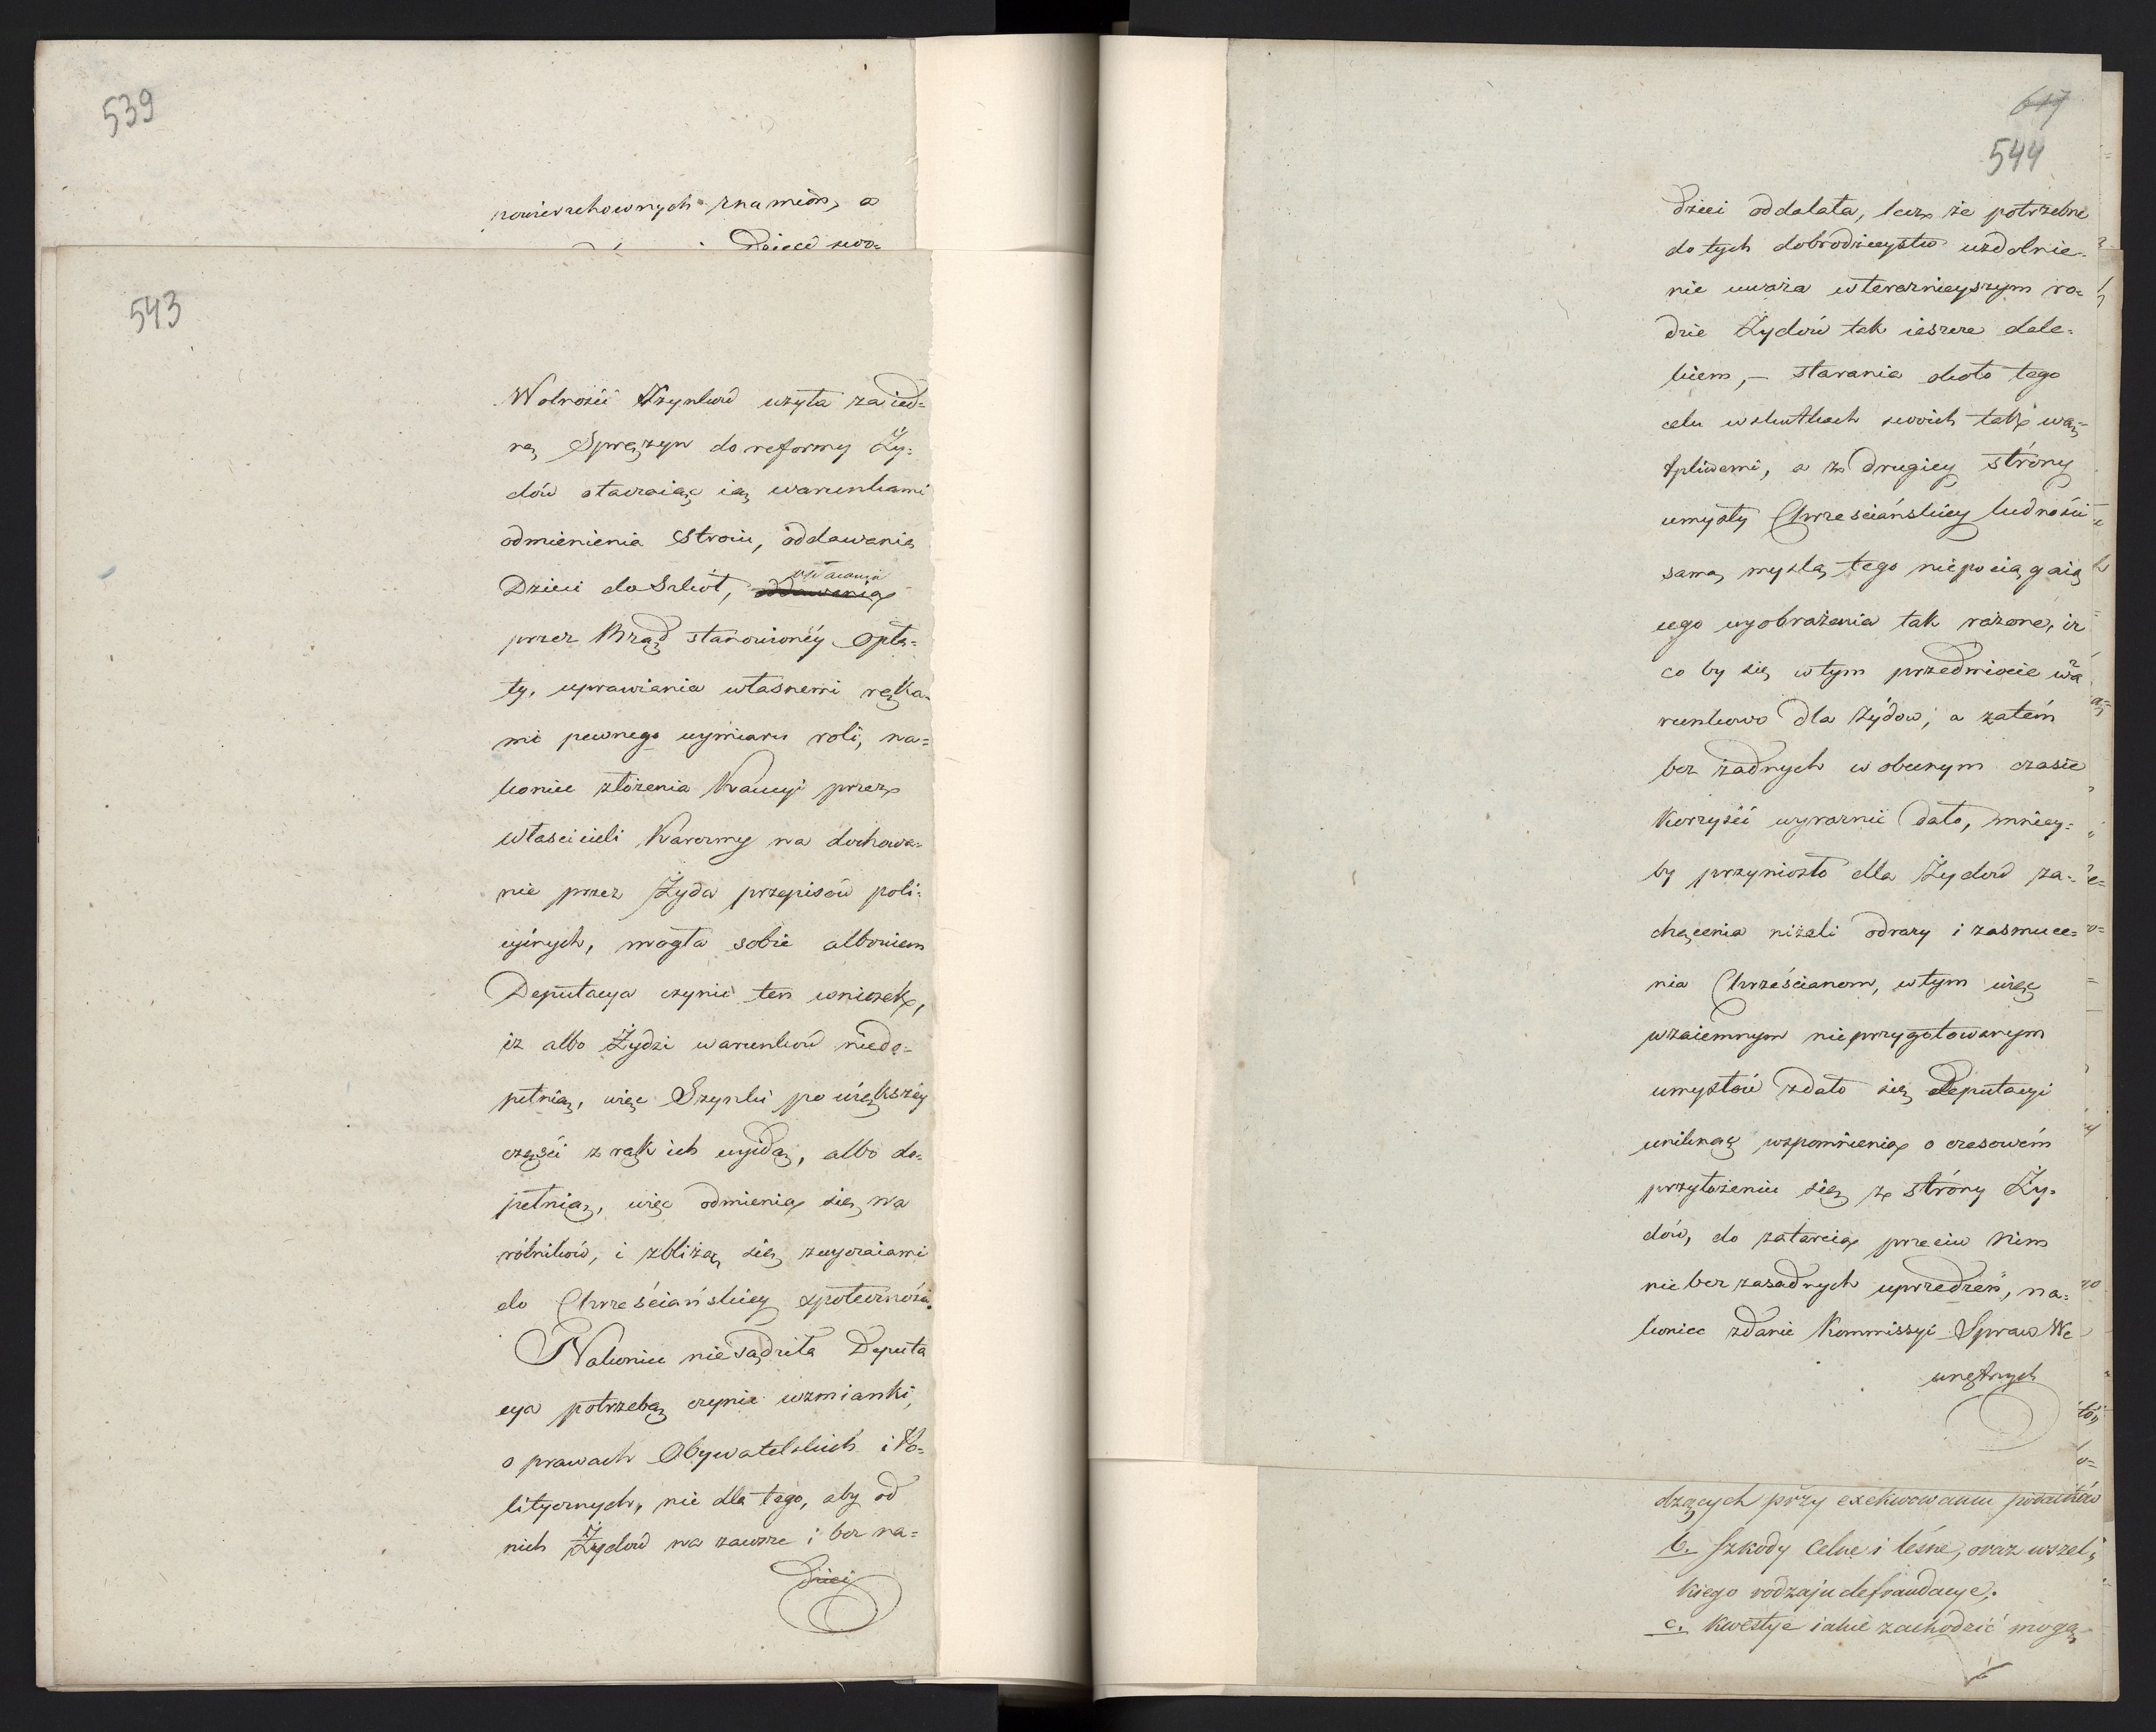 539
powierzchownych znamion, a
Dzieci swo=
543
Wolność Szynków użyta za ied=
ną Sprężyn do reformy Ży=
dów otaczaiąc ią warunkami
odmienienia Stroiu, oddawania
Dzieci do Szkół, opłacania
przez Rząd stanowionéy Opła=
ty, uprawiania własnemi ręka=
mi pewnego wymiaru roli, na=
koniec złożenia Kaucyi przez
właścicieli Karczmy na dochowa=
nie przez Żyda przepisów poli=
cyinych, mogła sobie albowiem
Deputacya czynić ten wniosek,
iż albo Żydzi warunków niedo=
pełnią, więc Szynki po większéy
części z rąk ich wyidą, albo do=
pełnią, więc odmienią się na
rólników, i zbliżą się zwyczaiami
do Chrześciańskiey społeczności.
Nakoniec niesądziła Deputa
cya potrzebą czynić wzmianki,
o prawach Obywatelskich i Po=
litycznych, nie dla tego, aby od
nich Żydów na zawsze i bez na=
dziei
617
544
dziei oddalała, lecz że potrzebne
do tych dobrodzieystw uzdolnie=
nie uważa w teraźnieyszym ro=
dzie Żydów tak ieszcze dale=
kiem, – starania około tego
celu w skutkach swoich tak wą=
tpliwemi, a z drugiey strony
umysły Chrześciańskiey ludności
samą myślą tego niepociągaią
cego wyobrażenia tak rażone, iż
co by się w tym przedmiocie wa
runkowo dla Żydów, a zatém
bez żadnych w obecnym czasie
Korzyści wyrazniè dało, mniey=
by przyniosło dla Żydów za=
chęcenia niżeli odrazy i zasmuce=
nia Chrześcianom, w tym więc
wzaiemnym nieprzygotowanym
umysłów zdało się Deputacyi
uniknąć wspomnienia o czasowém
przyłożeniu się z strony Ży=
dów, do zatarcia przeciw Nim
nie bez zasadnych uprzedzeń, na=
koniec zdanie Kommissyi Spraw We
wnętrznych
dzących przy exekwowaniu podatków
b. Szkody Celne i leśne, oraz wszel=
kiego rodzaju defraudacye;
c. Kwestye iakie zachodzić mogą